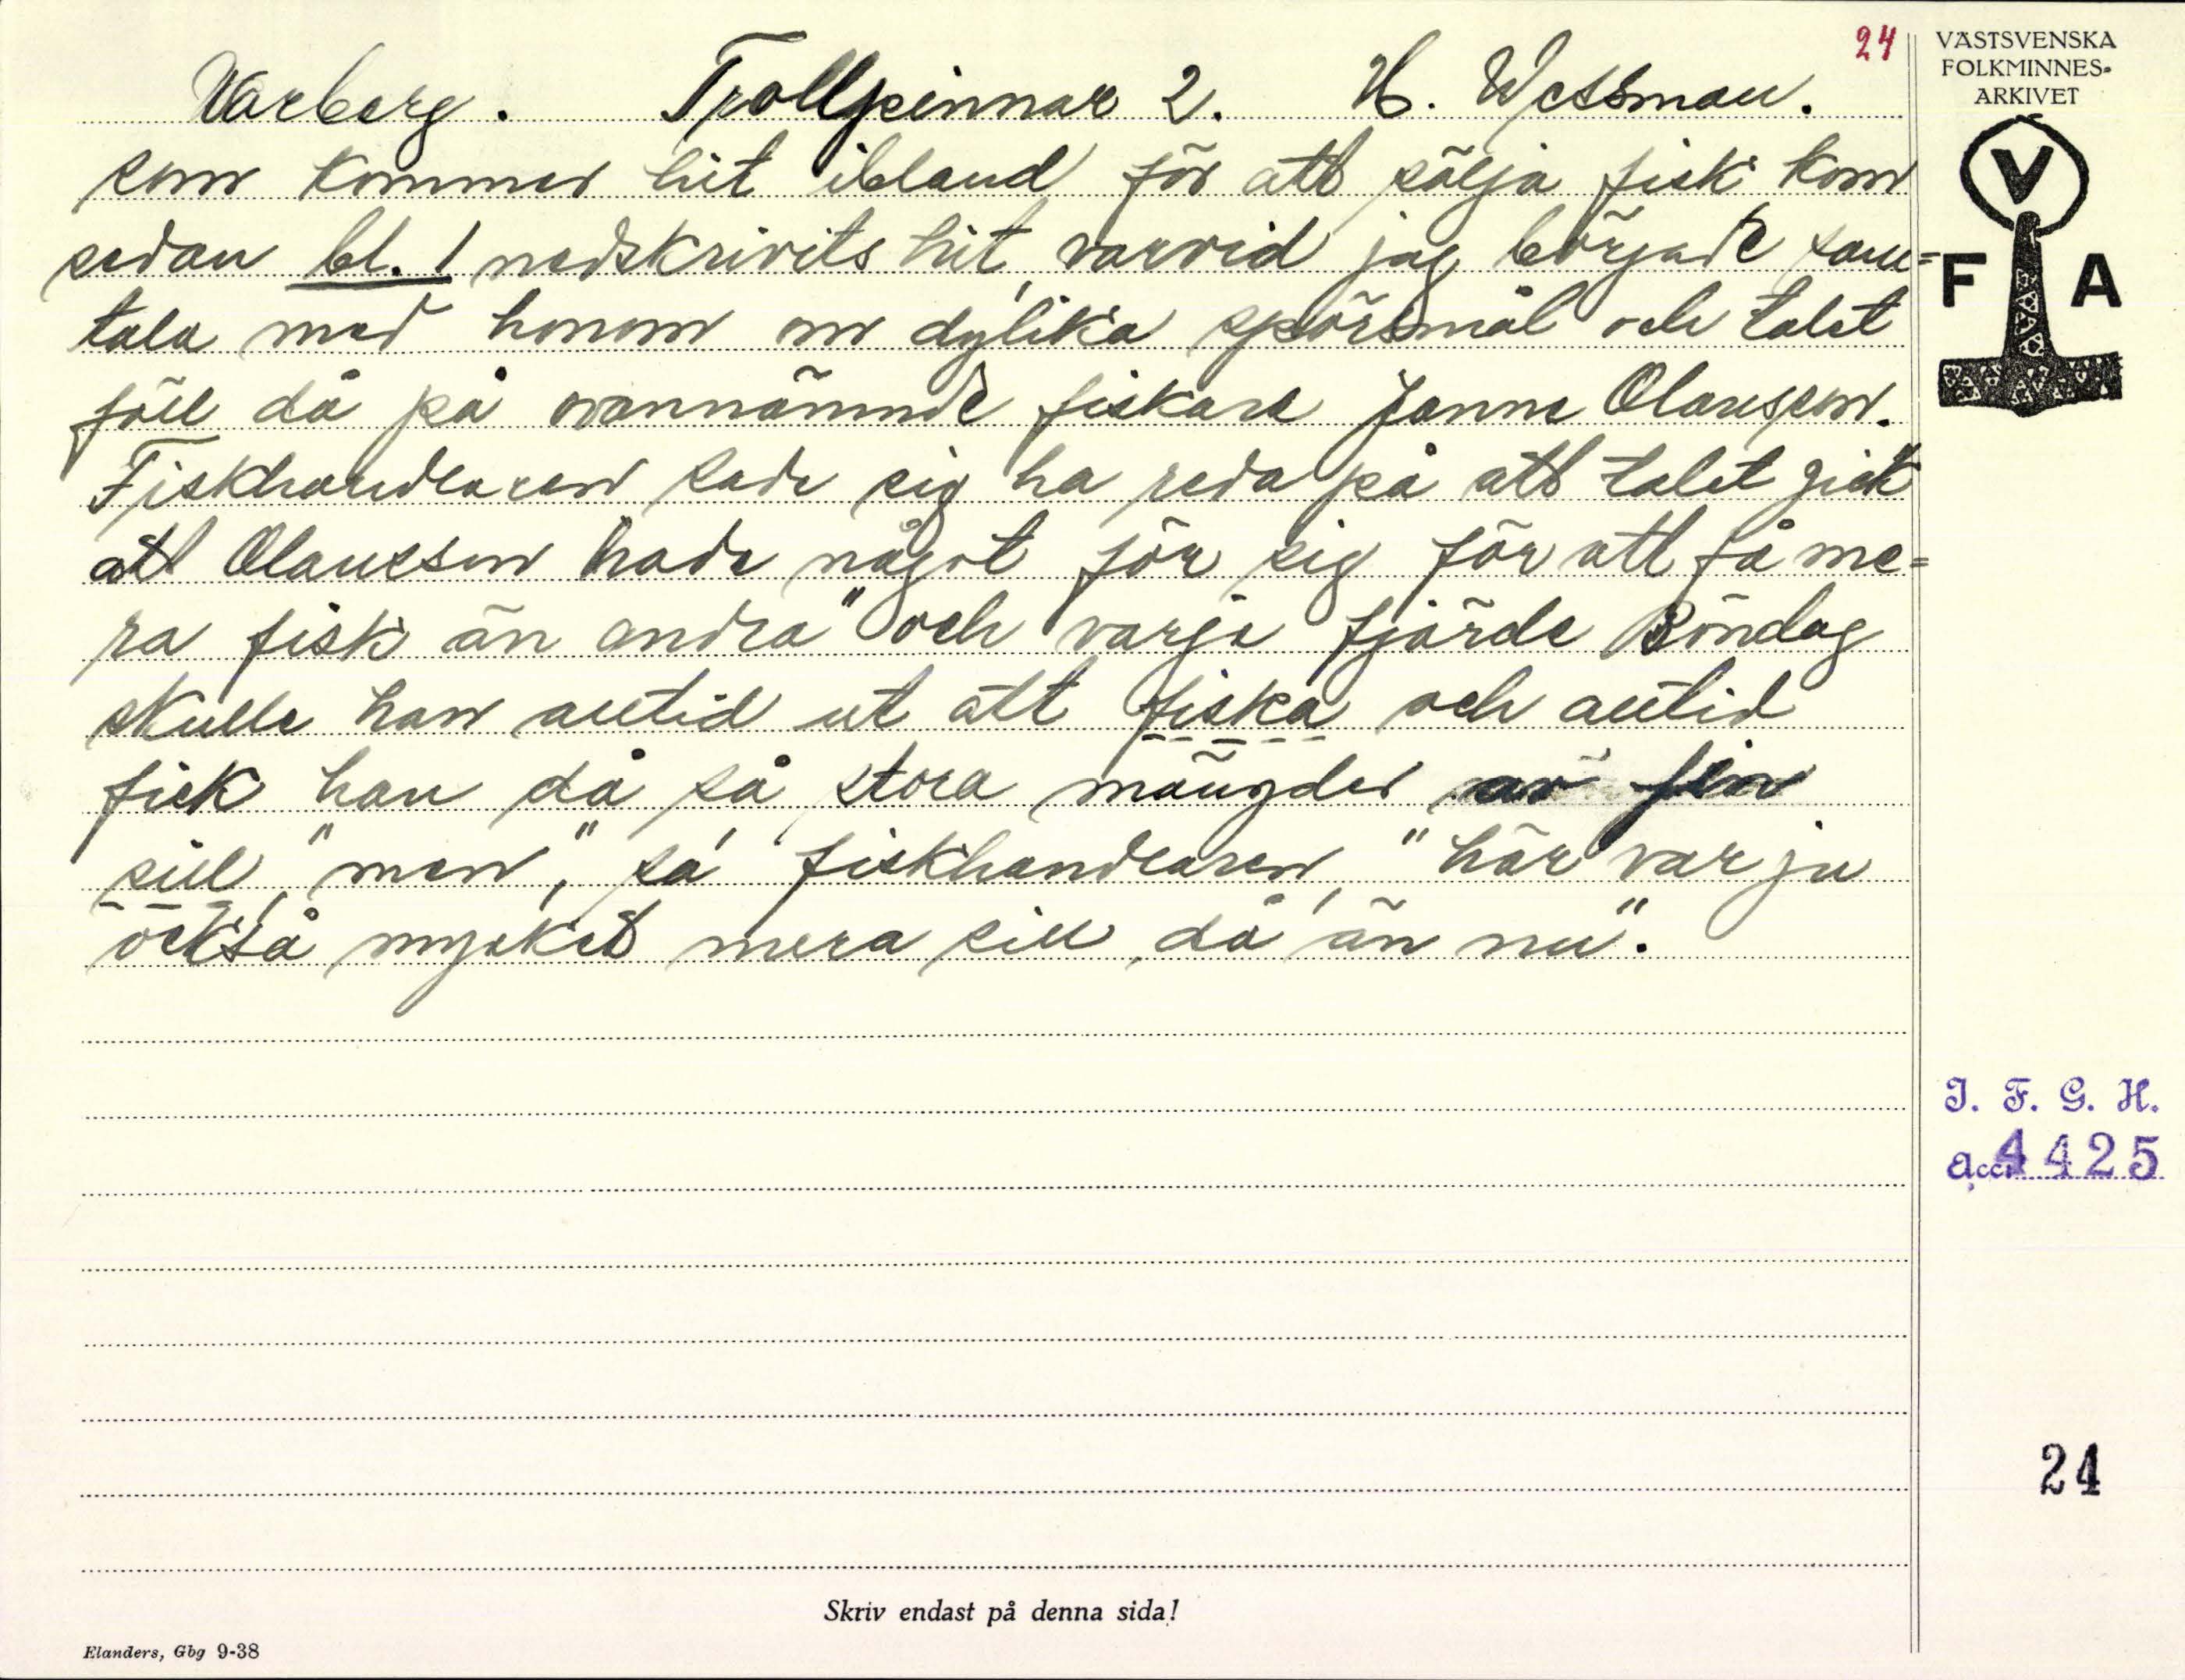 24
VÄSTSVENSKA
FOLKMINNES-
ARKIVET
V
F A
Varberg. Trollpinnar 2. H. Wessman.
som kommer hit ibland för att sälja fisk kom
sedan bl. 1 nedskrivits hit, varvid jag började sam=
tala med honom om dylika spörsmål och talet
föll då på ovannämnde fiskare Janne Olausson.
Fiskhandlaren sade sig ha reda på att talet gick
att Olausson "hade något för sig för att få me=
ra fisk än andra" och varje fjärde Söndag
skulle han alltid ut att fiska och alltid
fick han då så stora mängder av fin
sill, "men", sa' fiskhandlaren, "här var ju
också mycket mera sill, då, än nu".
I. F. G. H.
Acc. 4425
24
Skriv endast på denna sida!
Elanders, Gbg 9-38